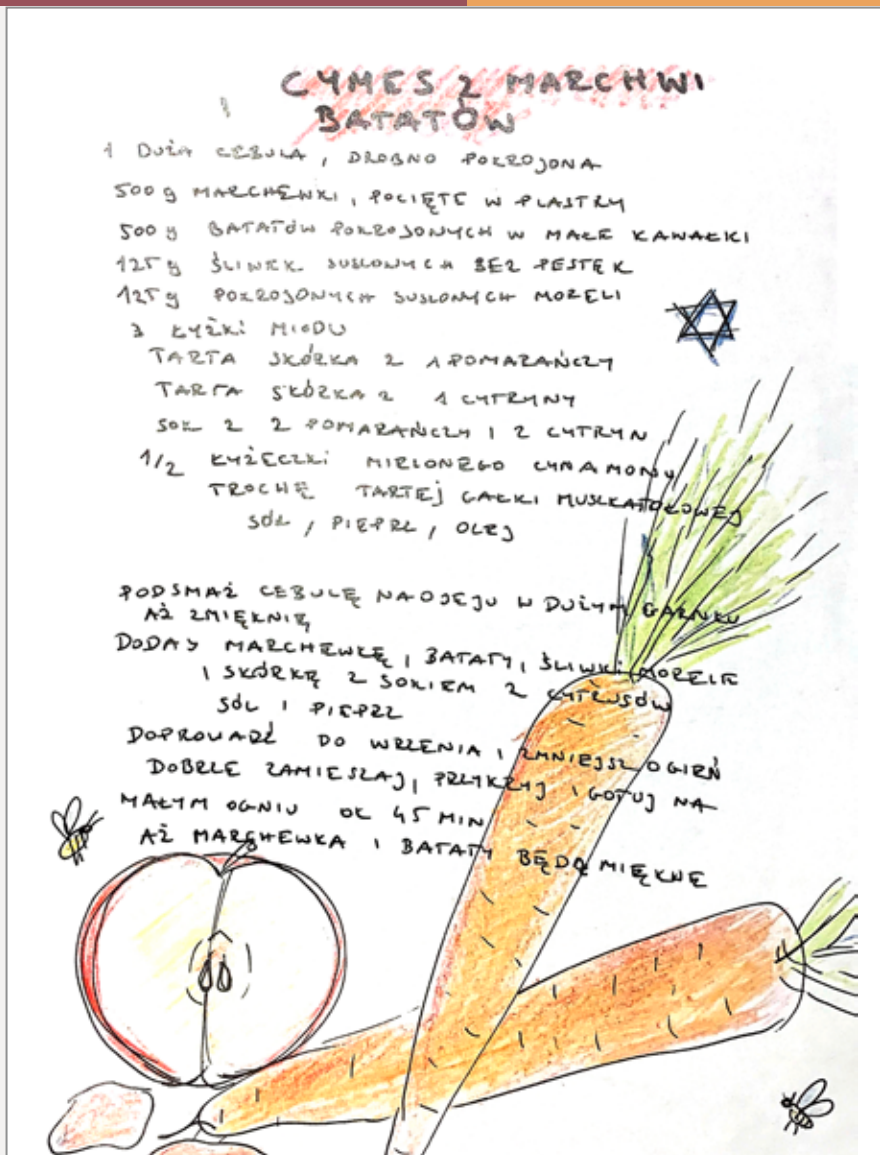 CYMES Z MARCHWI
I BATATÓW
1 DUŻA CEBULA, DROBNO POKROJONA
500 g MARCHEWKI, POCIĘTE W PLASTRY
500 g BATATÓW POKROJONYCH W MAŁE KAWAŁKI
125 g ŚLIWEK SUSZONYCH BEZ PESTEK
125 g POKROJONYCH SUSZONYCH MORELI
3 ŁYŻKI MIODU
TARTA SKÓRKA Z 1 POMARAŃCZY
TARTA SKÓRKA Z 1 CYTRYNY
SOK Z 2 POMARAŃCZY I 2 CYTRYN
1/2 ŁYŻECZKI MIELONEGO CYNAMONU
TROCHĘ TARTEJ GAŁKI MUSZKATOŁOWEJ
SÓL, PIEPRZ, OLEJ
PODSMAŻ CEBULĘ NA OLEJU W DUŻYM GARNKU
AŻ ZMIĘKNIE
DODAJ MARCHEWKĘ, BATATY, ŚLIWKI, MORELE
I SKÓRKĘ Z SOKIEM Z CYTRUSÓW
SÓL I PIEPRZ
DOPROWADŹ DO WRZENIA I ZMNIEJSZ OGIEŃ
DOBRZE ZAMIESZAJ, PRZYKRYJ I GOTUJ NA
MAŁYM OGNIU OK 45 MIN
AŻ MARCHEWKA I BATATY BĘDĄ MIĘKKIE